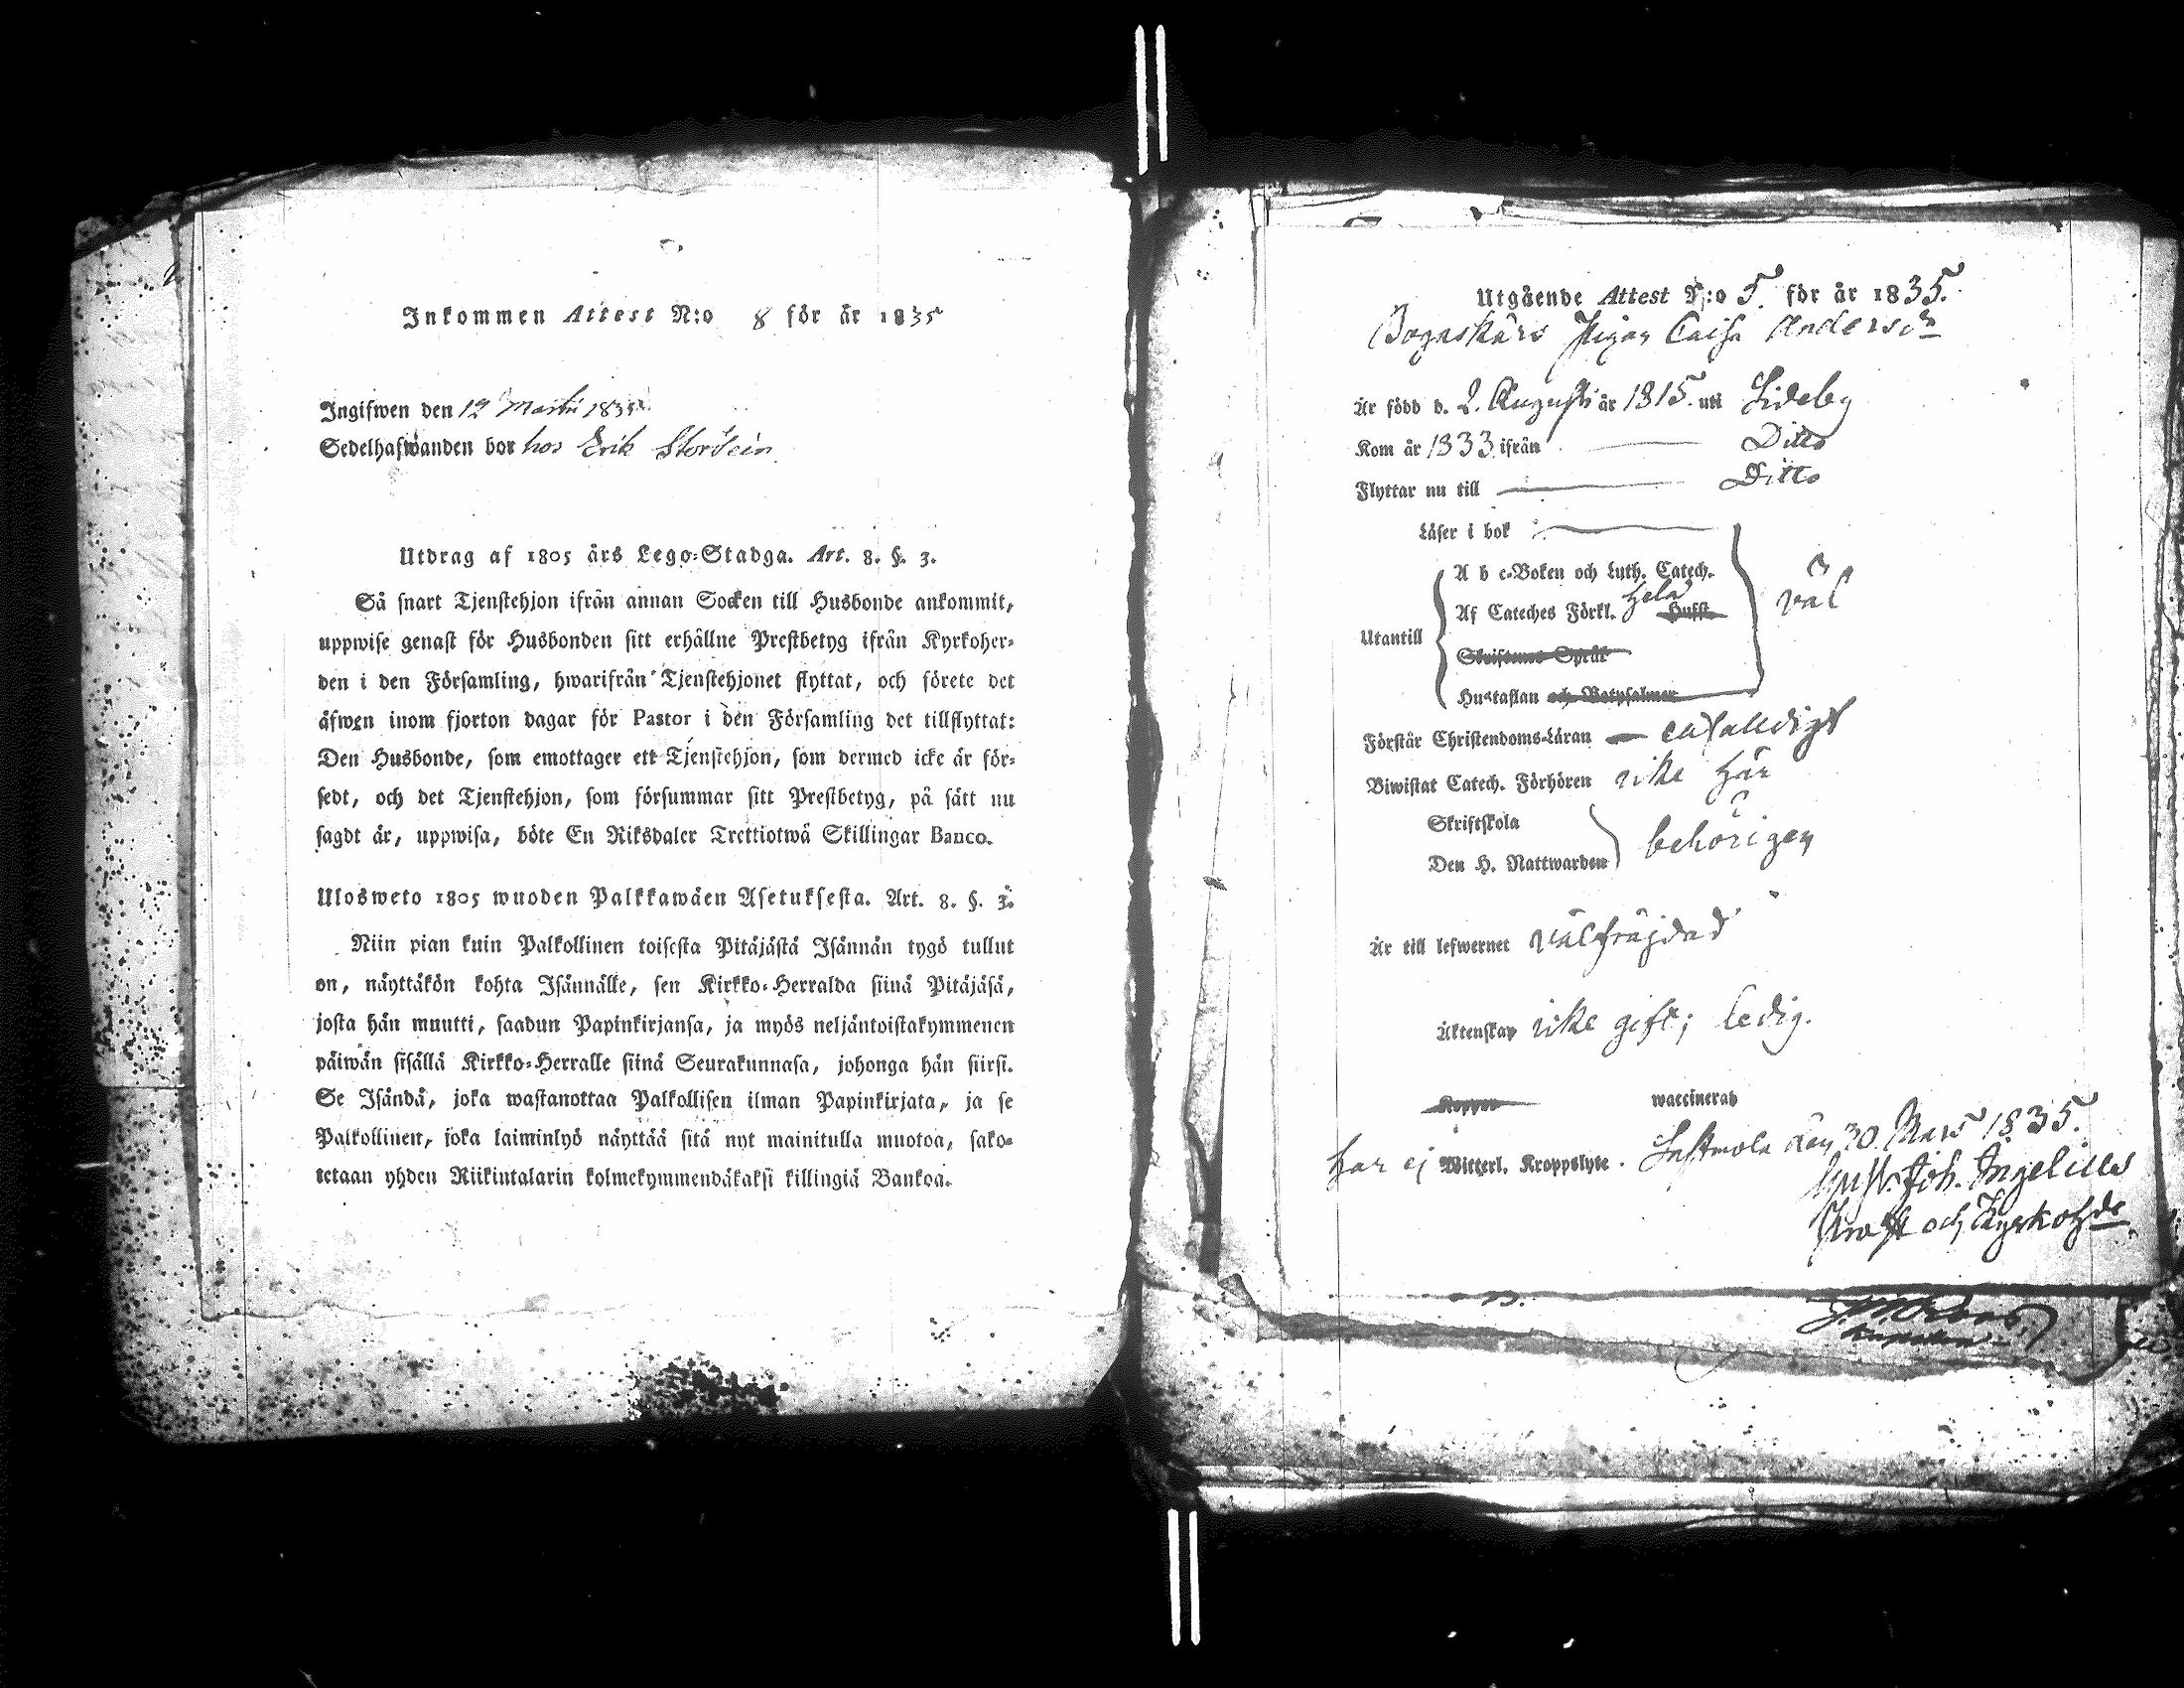 Inkommen Attest N:o 8 för år 1835
Ingifwen den 12 Martii 1835
Sedelhafwanden bor hos Erik Storsein
Utdrag af 1805 års Lego-Stadga. Art. 8. §. 3.
Så snart Tjenstehjon ifrån annan Socken till Husbonde ankommit,
uppwise genast för Husbonden sitt erhållne Prestbetyg ifrån Kyrkoher-
den i den Församling, hwarifrån Tjenstehjonet flyttat, och förete det
äfwen inom fjorton dagar för Pastor i den Församling det tillflyttat:
Den Husbonde, som emottager ett Tjenstehjon, som dermed icke är för-
sedt, och det Tjenstehjon, som försummar sitt Prestbetyg, på sätt nu
sagdt är, uppwisa, böte En Riksdaler Trettiotwå Skillingar Banco.
Ulosweto 1805 wuoden Palkkawäen Asetuksesta. Art. 8. §. 3.
Niin pian kuin Palkollinen toisesta Pitäjästä Isännän tygö tullut
on, näyttäkön kohta Isännälle, sen Kirkko-Herralda siinä Pitäjäsä,
josta hän muutti, saadun Papinkirjansa, ja myös neljäntoistakymmenen
päiwän sisällä Kirkko-Herralle siinä Seurakunnasa, johonga hän siirsi.
Se Isändä, joka wastanottaa Palkollisen ilman Papinkirjata, ja se
Palkollinen, joka laiminlyö näyttää sitä nyt mainitulla muotoa, sako-
tetaan yhden Riikintalarin kolmekymmendäkaksi killingiä Bankoa.
Utgående Attest N:o 5. för år 1835.
Pigan Caisa Andersdr
Är född d. 2. Augusti år 1815. uti Sideby
Kom år 1833 ifrån Ditto
Flyttar nu till Ditto
Läser i bok
A b c-Boken och Luth. Catech.
Utantill Af Cateches Förkl. hela Hufst. väl
Skriftens Språk
Hustaflan och Botpsalmer
Förstår Christendoms-Läran enfalldigt
Biwistat Catech. Förhören icke här
Skriftskola
Den H. Nattwarden behörigen
Är till lefwernet välfräjdad
Äktenskap icke gift; ledig.
Koppor waccinerad
har ej Witterl. Kroppslyte. Lastmola den 30. Mars 1835.
Gust. Joh. Ingelius
Prost och Kyrkohde